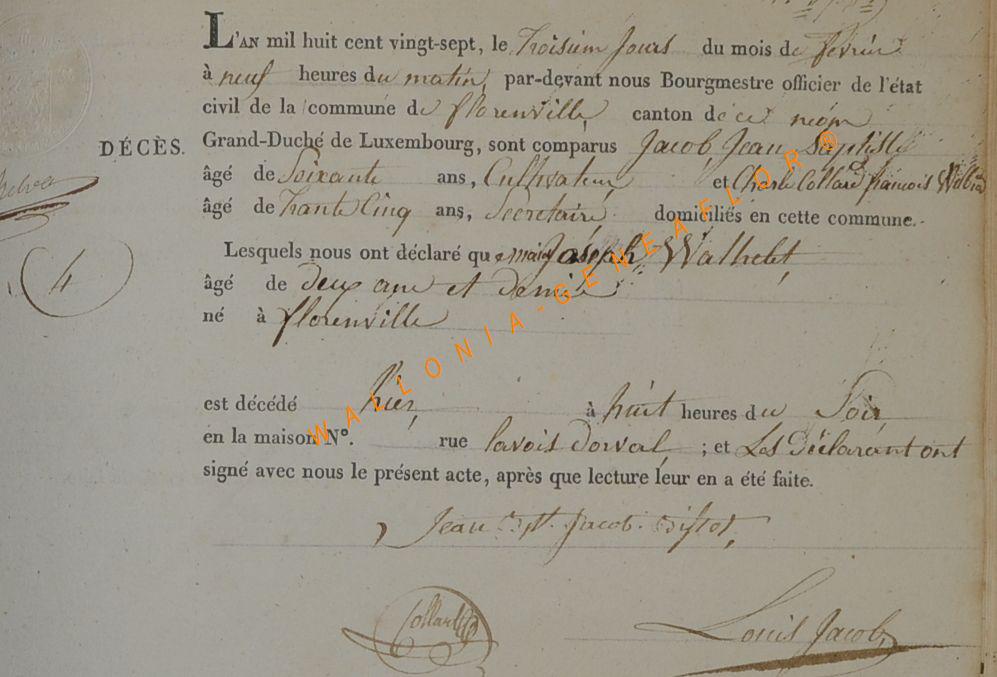 L'AN mil huit cent vingt-sept, le Troisiem Jours du mois de fevrier
à neuf heures du matin, par-devant nous Bourgmestre officier de l'état
civil de la commune de florenville canton de ce nom
DÉCÈS. Grand-Duché de Luxembourg, sont comparus Jacob Jean Baptiste
âgé de Soixante ans, Cultivateur et Charle Collard francois
âgé de Trante Cinq ans, Secretaire domiciliés en cette commune.
Lesquels nous ont déclaré que Joseph Walhelet,
4
âgé de deux ans et demie
né à florenville
est décédé hier, à huit heures du Soir
en la maison N°. rue lavois dorval ; et Les Déclarant ont
signé avec nous le présent acte, après que lecture leur en a été faite.
Jean Bt. Jacob
Collard
Louis Jacob
WALLONIA-GENEAFLOR®